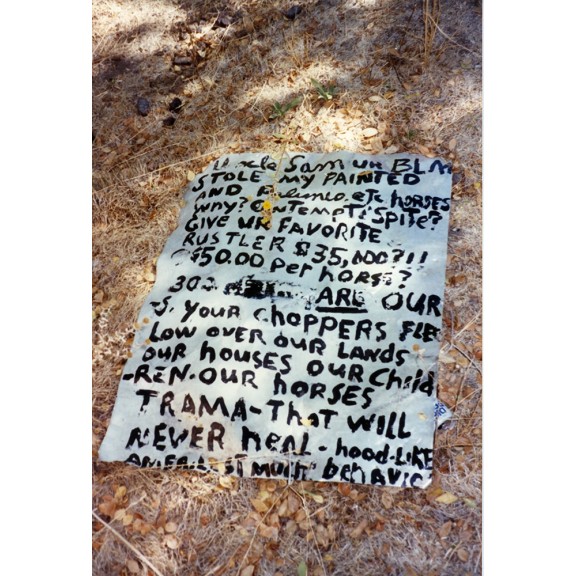 Uncle Sam UR BLM
STOLE MY PAINTED
AND etc HORSES
WHY? CONTEMPT? SPITE?
GIVE UR FAVORITE
RUSTLER $35,000?!!
$50.00 Per horse?
ARE OUR
-S. YOUR CHOPPERS FLE
LOW OVER OUR LANDS
OUR HOUSES OUR Child
-REN-OUR horses
TRAMA-That WILL
NEVER HEAL. hood-LIKE
MUCH behAVIO